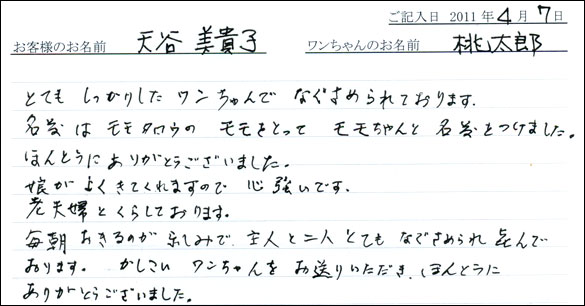 ご記入日 2011年4月7日
お客様のお名前 天谷 美貴子 ワンちゃんのお名前 桃太郎
とても しっかりした ワンちゃんで なぐさめられております.
名前は モモタロウの モモをとって モモちゃんと 名前をつけました。
ほんとうにありがとうございました。
娘がよくきてくれますので 心強いです.
老夫婦とくらしております.
毎朝 おきるのが 楽しみで. 主人と二人 とても なぐさめられ 喜んで
おります。 かしこい ワンちゃんを お送りいただき. ほんとうに
ありがとうございました。